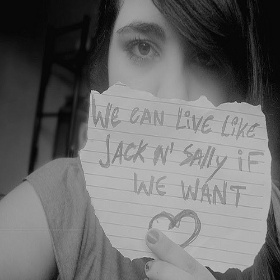 WE CAN LiVE LiKE
JACK N' SAlly iF
WE WANT